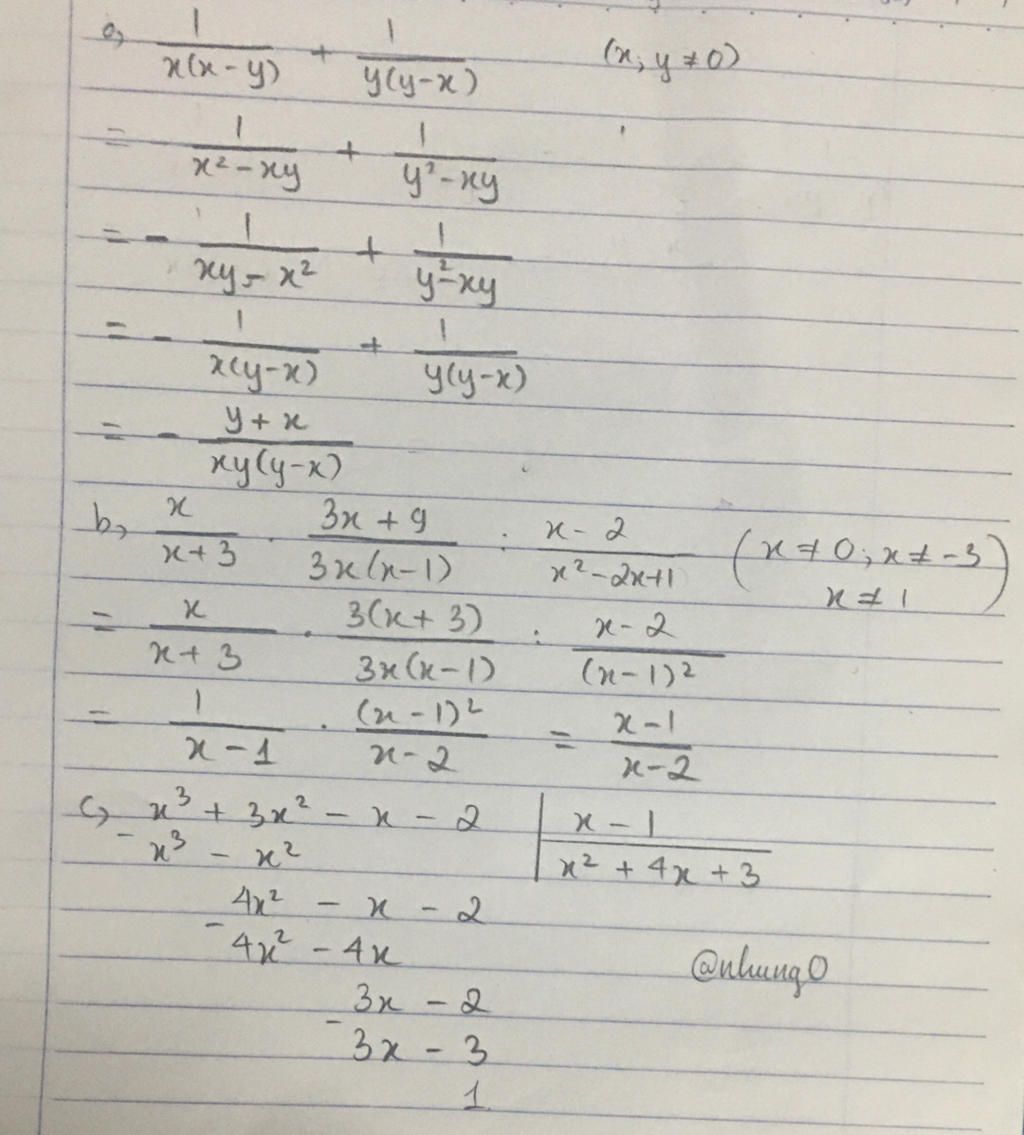 a, 1/(x(x-y)) + 1/(y(y-x)) (x, y ≠ 0)
= 1/(x² - xy) + 1/(y² - xy)
= - 1/(xy - x²) + 1/(y² - xy)
= - 1/(x(y-x)) + 1/(y(y-x))
= - (y + x)/(xy(y-x))
b, x/(x+3) . (3x + 9)/(3x(x-1)) : (x - 2)/(x² - 2x + 1) (x ≠ 0; x ≠ -3 x ≠ 1)
= x/(x + 3) . 3(x + 3)/(3x(x-1)) : (x - 2)/(x-1)²
= 1/(x - 1) . (x - 1)²/(x - 2) = (x - 1)/(x - 2)
c, x³ + 3x² - x - 2 | x - 1
- x³ - x² | x² + 4x + 3
4x² - x - 2
- 4x² - 4x
@nhung0
3x - 2
- 3x - 3
1